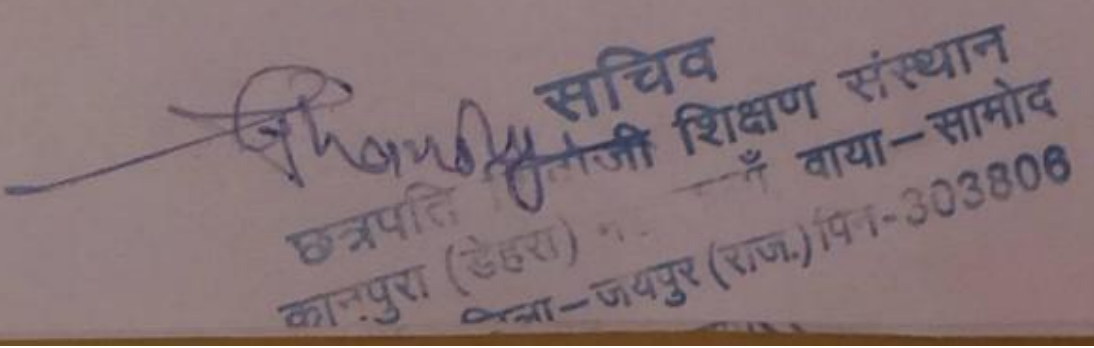 सचिव
छत्रपति शिक्षण संस्थान
कानपुरा (डेहरा) वाया-सामोद
जिला-जयपुर (राज.) पिन-303806